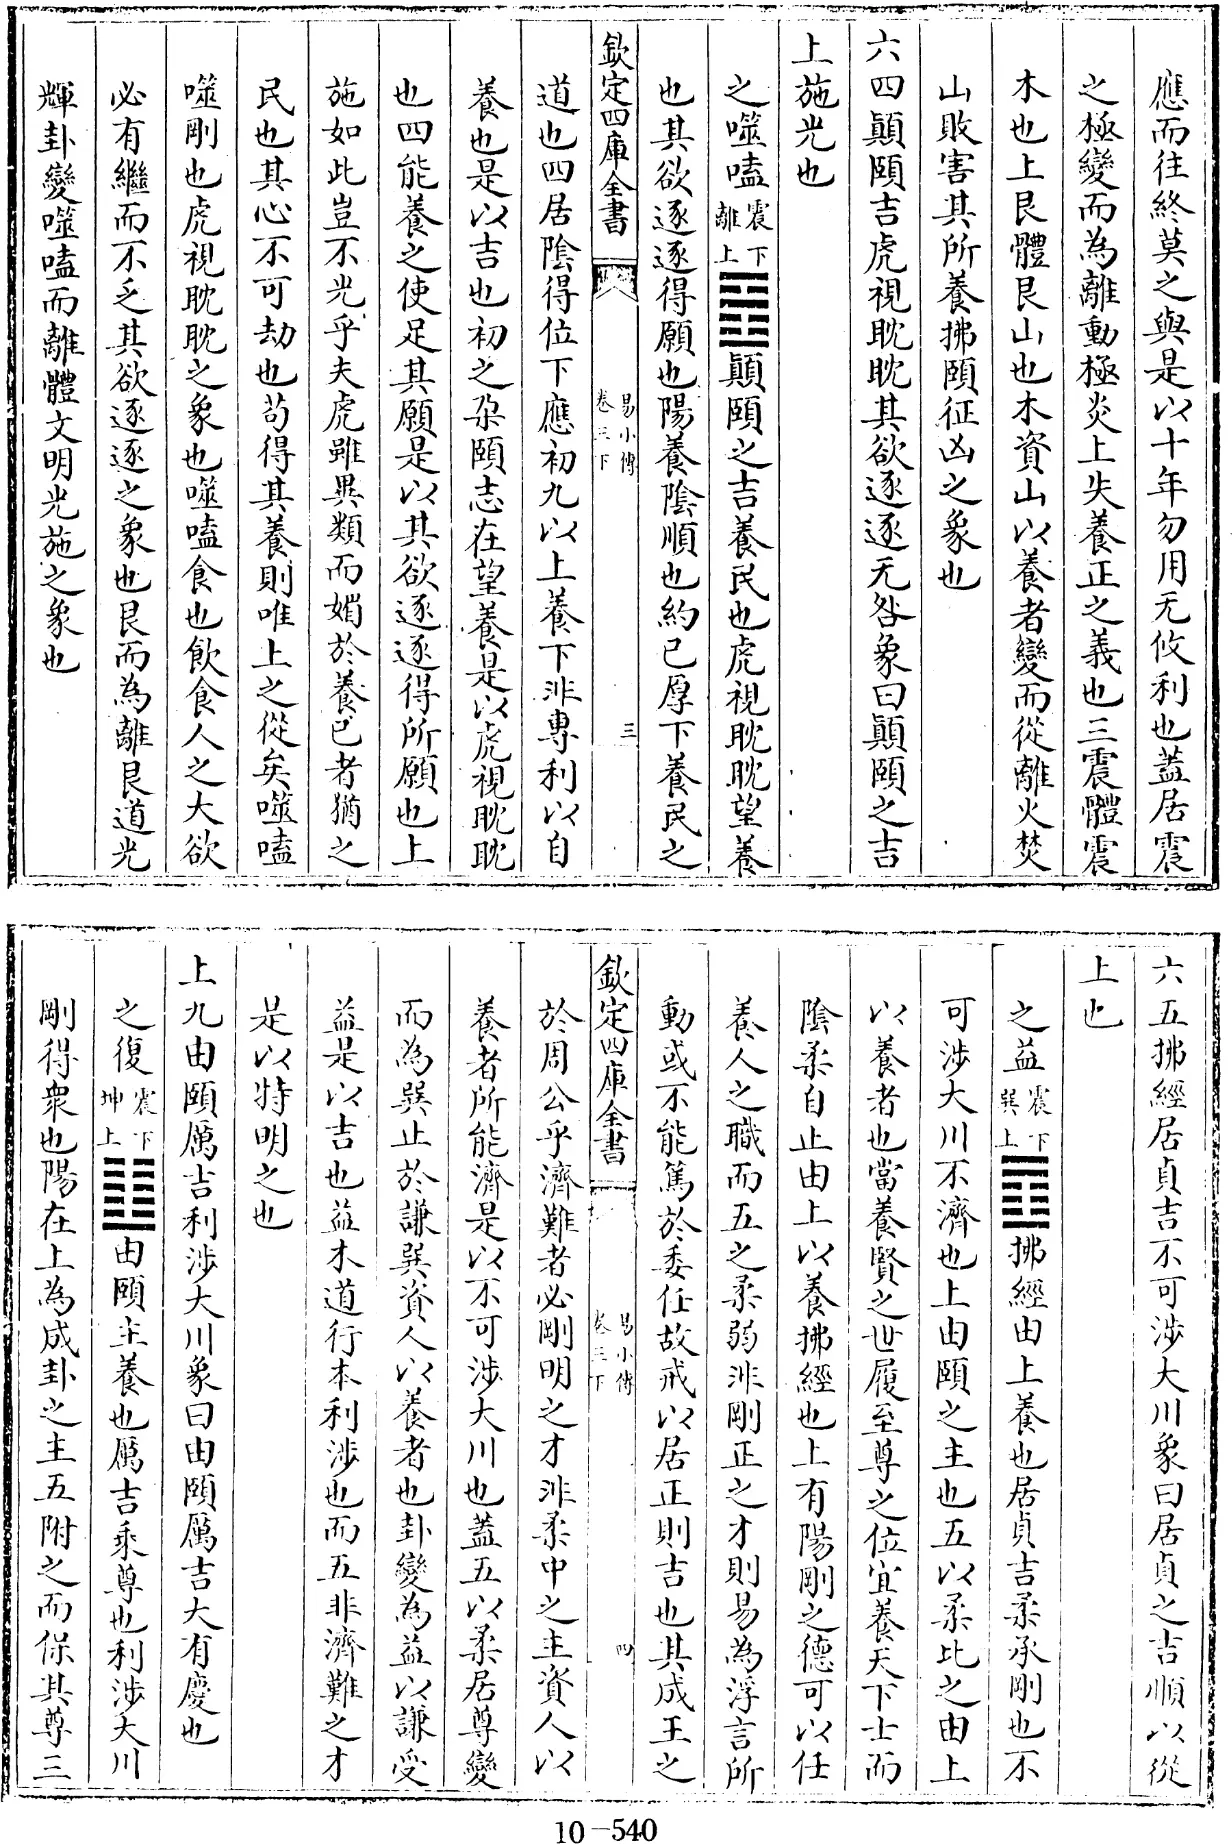 應而往終莫之與是以十年勿用无攸利也蓋居震
之極變而為離動極炎上失養正之義也三震體震
木也上艮體艮山也木資山以養者變而從離火焚
山敗害其所養拂頤征凶之象也
六四顛頤吉虎視眈眈其欲逐逐无咎象曰顛頤之吉
上施光也
之噬嗑震下離上䷔顛頤之吉養民也虎視眈眈望養
也其欲逐逐得願也陽養陰順也約己厚下養民之
欽定四庫全書
易小傳
卷三下
三
道也四居陰得位下應初九以上養下非專利以自
養也是以吉也初之朶頤志在望養是以虎視眈眈
也四能養之使足其願是以其欲逐逐得所願也上
施如此豈不光乎夫虎雖異類而媚於養己者猶之
民也其心不可劫也茍得其養則唯上之從矣噬嗑
噬剛也虎視眈眈之象也噬嗑食也飲食人之大欲
必有繼而不乏其欲逐逐之象也艮而為離艮道光
輝卦變噬嗑而離體文明光施之象也
六五拂經居貞吉不可涉大川象曰居貞之吉順以從
上也
之益震下巽上䷩拂經由上養也居貞吉柔承剛也不
可涉大川不濟也上由頤之主也五以柔比之由上
以養者也當養賢之世履至尊之位宜養天下士而
陰柔自止由上以養拂經也上有陽剛之德可以任
養人之職而五之柔弱非剛正之才則易為浮言所
動或不能篤於委任故戒以居正則吉也其成王之
欽定四庫全書
易小傳
卷三下
四
於周公乎濟難者必剛明之才非柔中之主資人以
養者所能濟是以不可涉大川也蓋五以柔居尊變
而為巽止於謙巽資人以養者也卦變為益以謙受
益是以吉也益木道行本利涉也而五非濟難之才
是以特明之也
上九由頤厲吉利涉大川象曰由頤厲吉大有慶也
之復震下坤上䷗由頤主養也厲吉乘尊也利涉大川
剛得衆也陽在上為成卦之主五附之而保其尊三
10-540